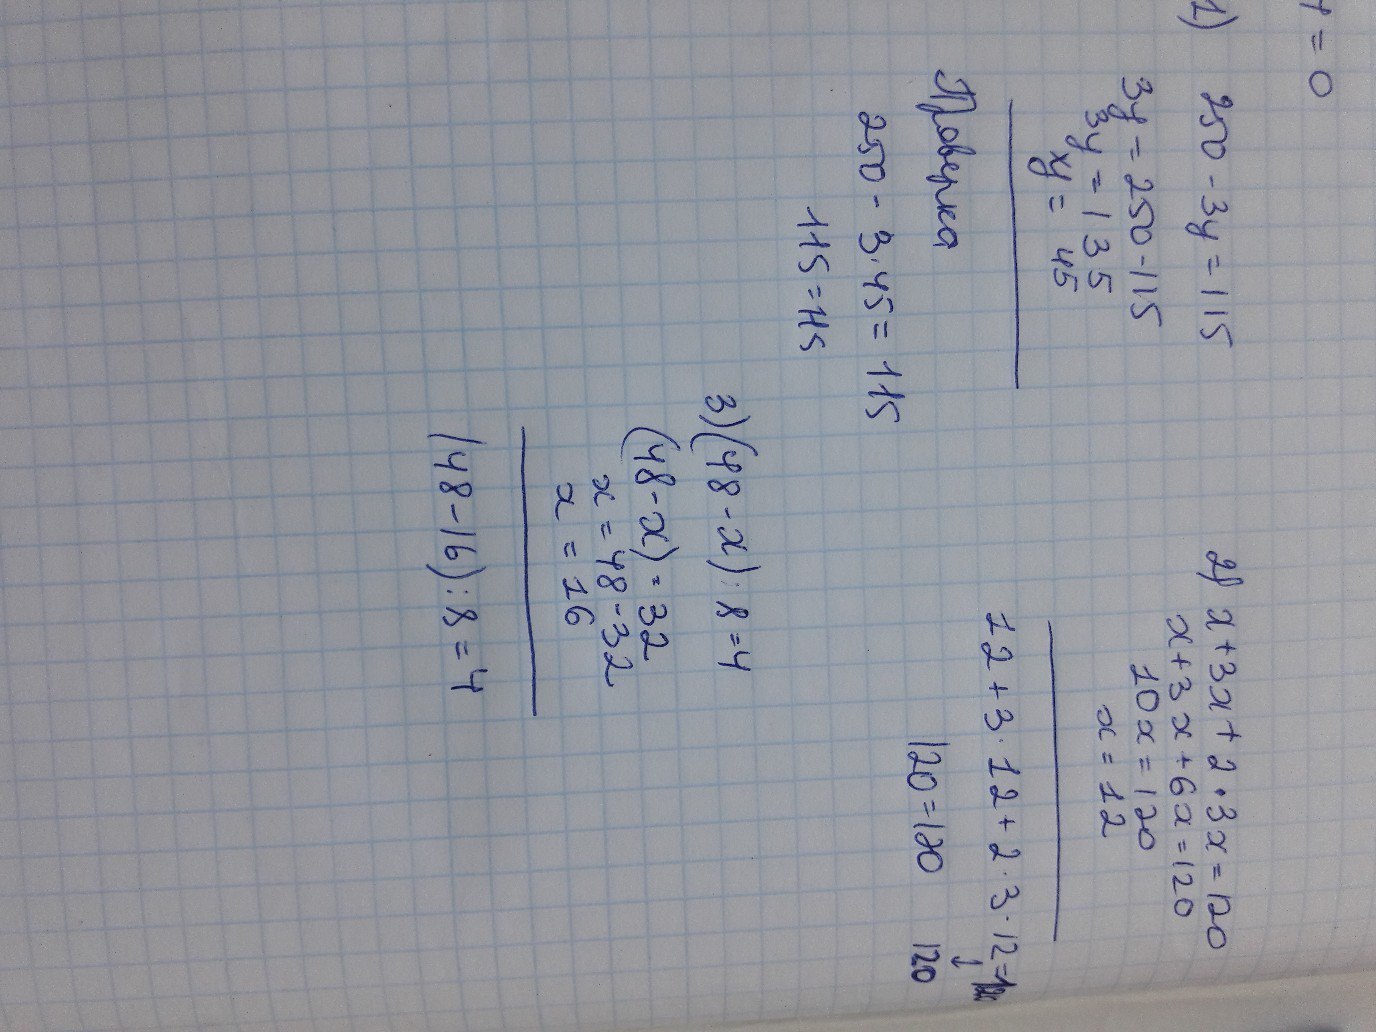 y = 0
1) 250 - 3y = 115
3y = 250 - 115
3y = 135
y = 45
Проверка
250 - 3·45 = 115
115 = 115
2) x + 3x + 2·3x = 120
x + 3x + 6x = 120
10x = 120
x = 12
12 + 3·12 + 2·3·12 =
↓
120 = 120 120
3) (48 - x) : 8 = 4
(48 - x) = 32
x = 48 - 32
x = 16
(48 - 16) : 8 = 4